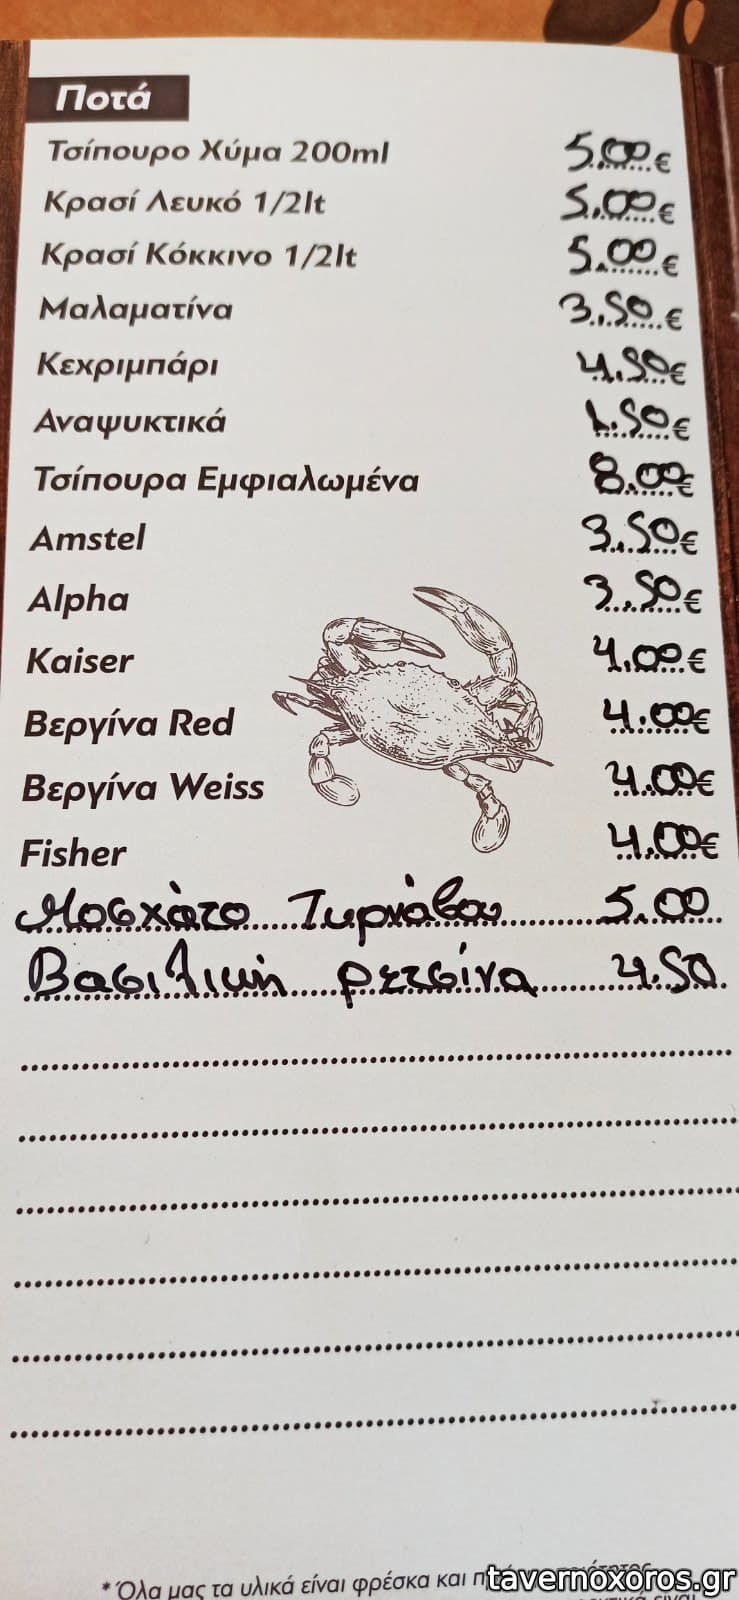 Ποτά
Τσίπουρο Χύμα 200ml 5.00€
Κρασί Λευκό 1/2lt 5.00€
Κρασί Κόκκινο 1/2lt 5.00€
Μαλαματίνα 3.50€
Κεχριμπάρι 4.50€
Αναψυκτικά 1.50€
Τσίπουρα Εμφιαλωμένα 8.00€
Amstel 3.50€
Alpha 3.50€
Kaiser 4.00€
Βεργίνα Red 4.00€
Βεργίνα Weiss 4.00€
Fisher 4.00€
Μοσχάτο Τυρνάβου 5.00
Βασιλική ρετσίνα 4.50
* Όλα μας τα υλικά είναι φρέσκα και
tavernoxoros.gr